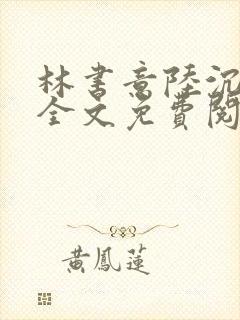 林書意陸沉
全文免費閱
黃鳳蓮